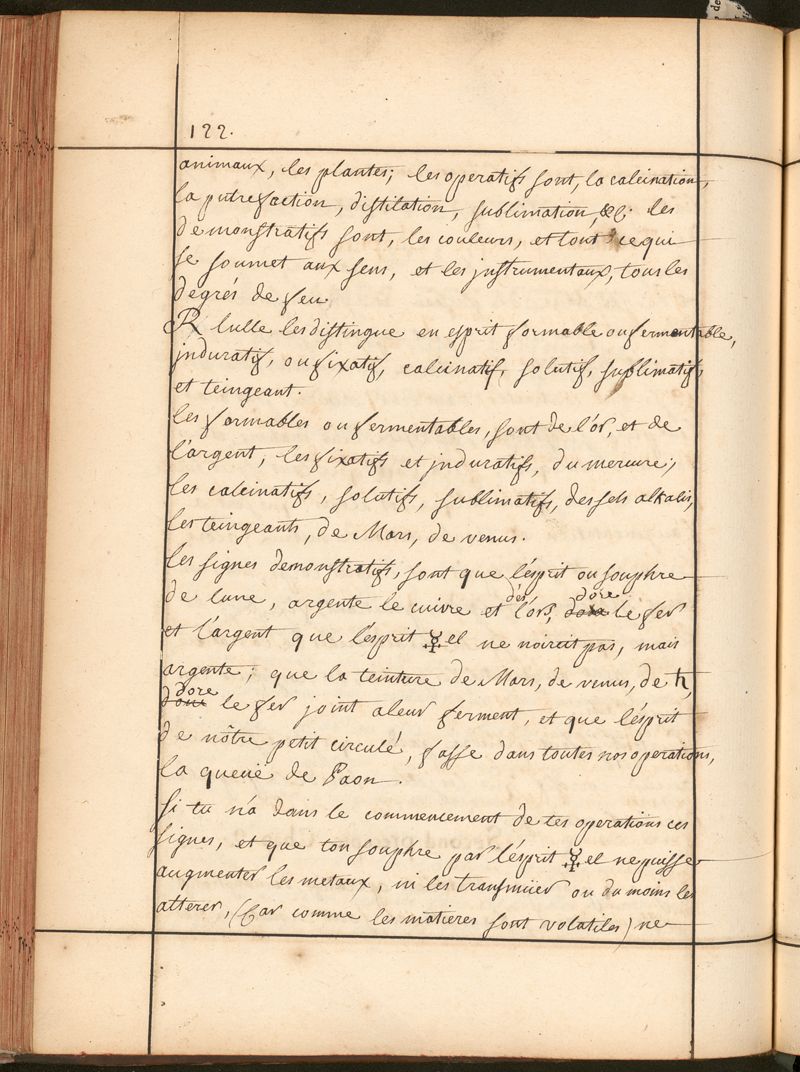 122.
animaux, les plantes; les operatifs sont, la calcination,
la putrefaction, distilation, sublimation, &c. les
demonstratifs sont, les couleurs, et tout ce qui
se soumet aux sens, et les jnstrumentaux, tous les
degrés de feu.
R lulle les distingue en esprit formable ou fermentable,
jnduratif, ou fixatif, calcinatif, solutif, sublimatif,
et teingeant.
les formables ou fermentables, sont de l'or, et de
l'argent, les fixatifs et jnduratifs, du mercure;
les calcinatifs, solutifs, sublimatifs, des sels alkalis,
les teingeants, de Mars, de venus.
les signes demonstratifs, sont que l'esprit ou souphre
de lune, argente le cuivre et dés l'or, dore le fer
et l'argent que l'esprit ☿el ne noircit pas, mais
argente; que la teinture de Mars, de venus, de ♄,
dore le fer joint a leur ferment, et que l'ésprit
de nôtre petit circulé, fasse dans toutes nos operations,
la queuë de Paon.
si tu n'a dans le commencement de tes operations ces
signes, et que ton souphre par l'ésprit ☿el ne puisse
augmenter les metaux, ni les transmüer ou du moins les
atterer, (Car comme les matieres sont volatiles) ne